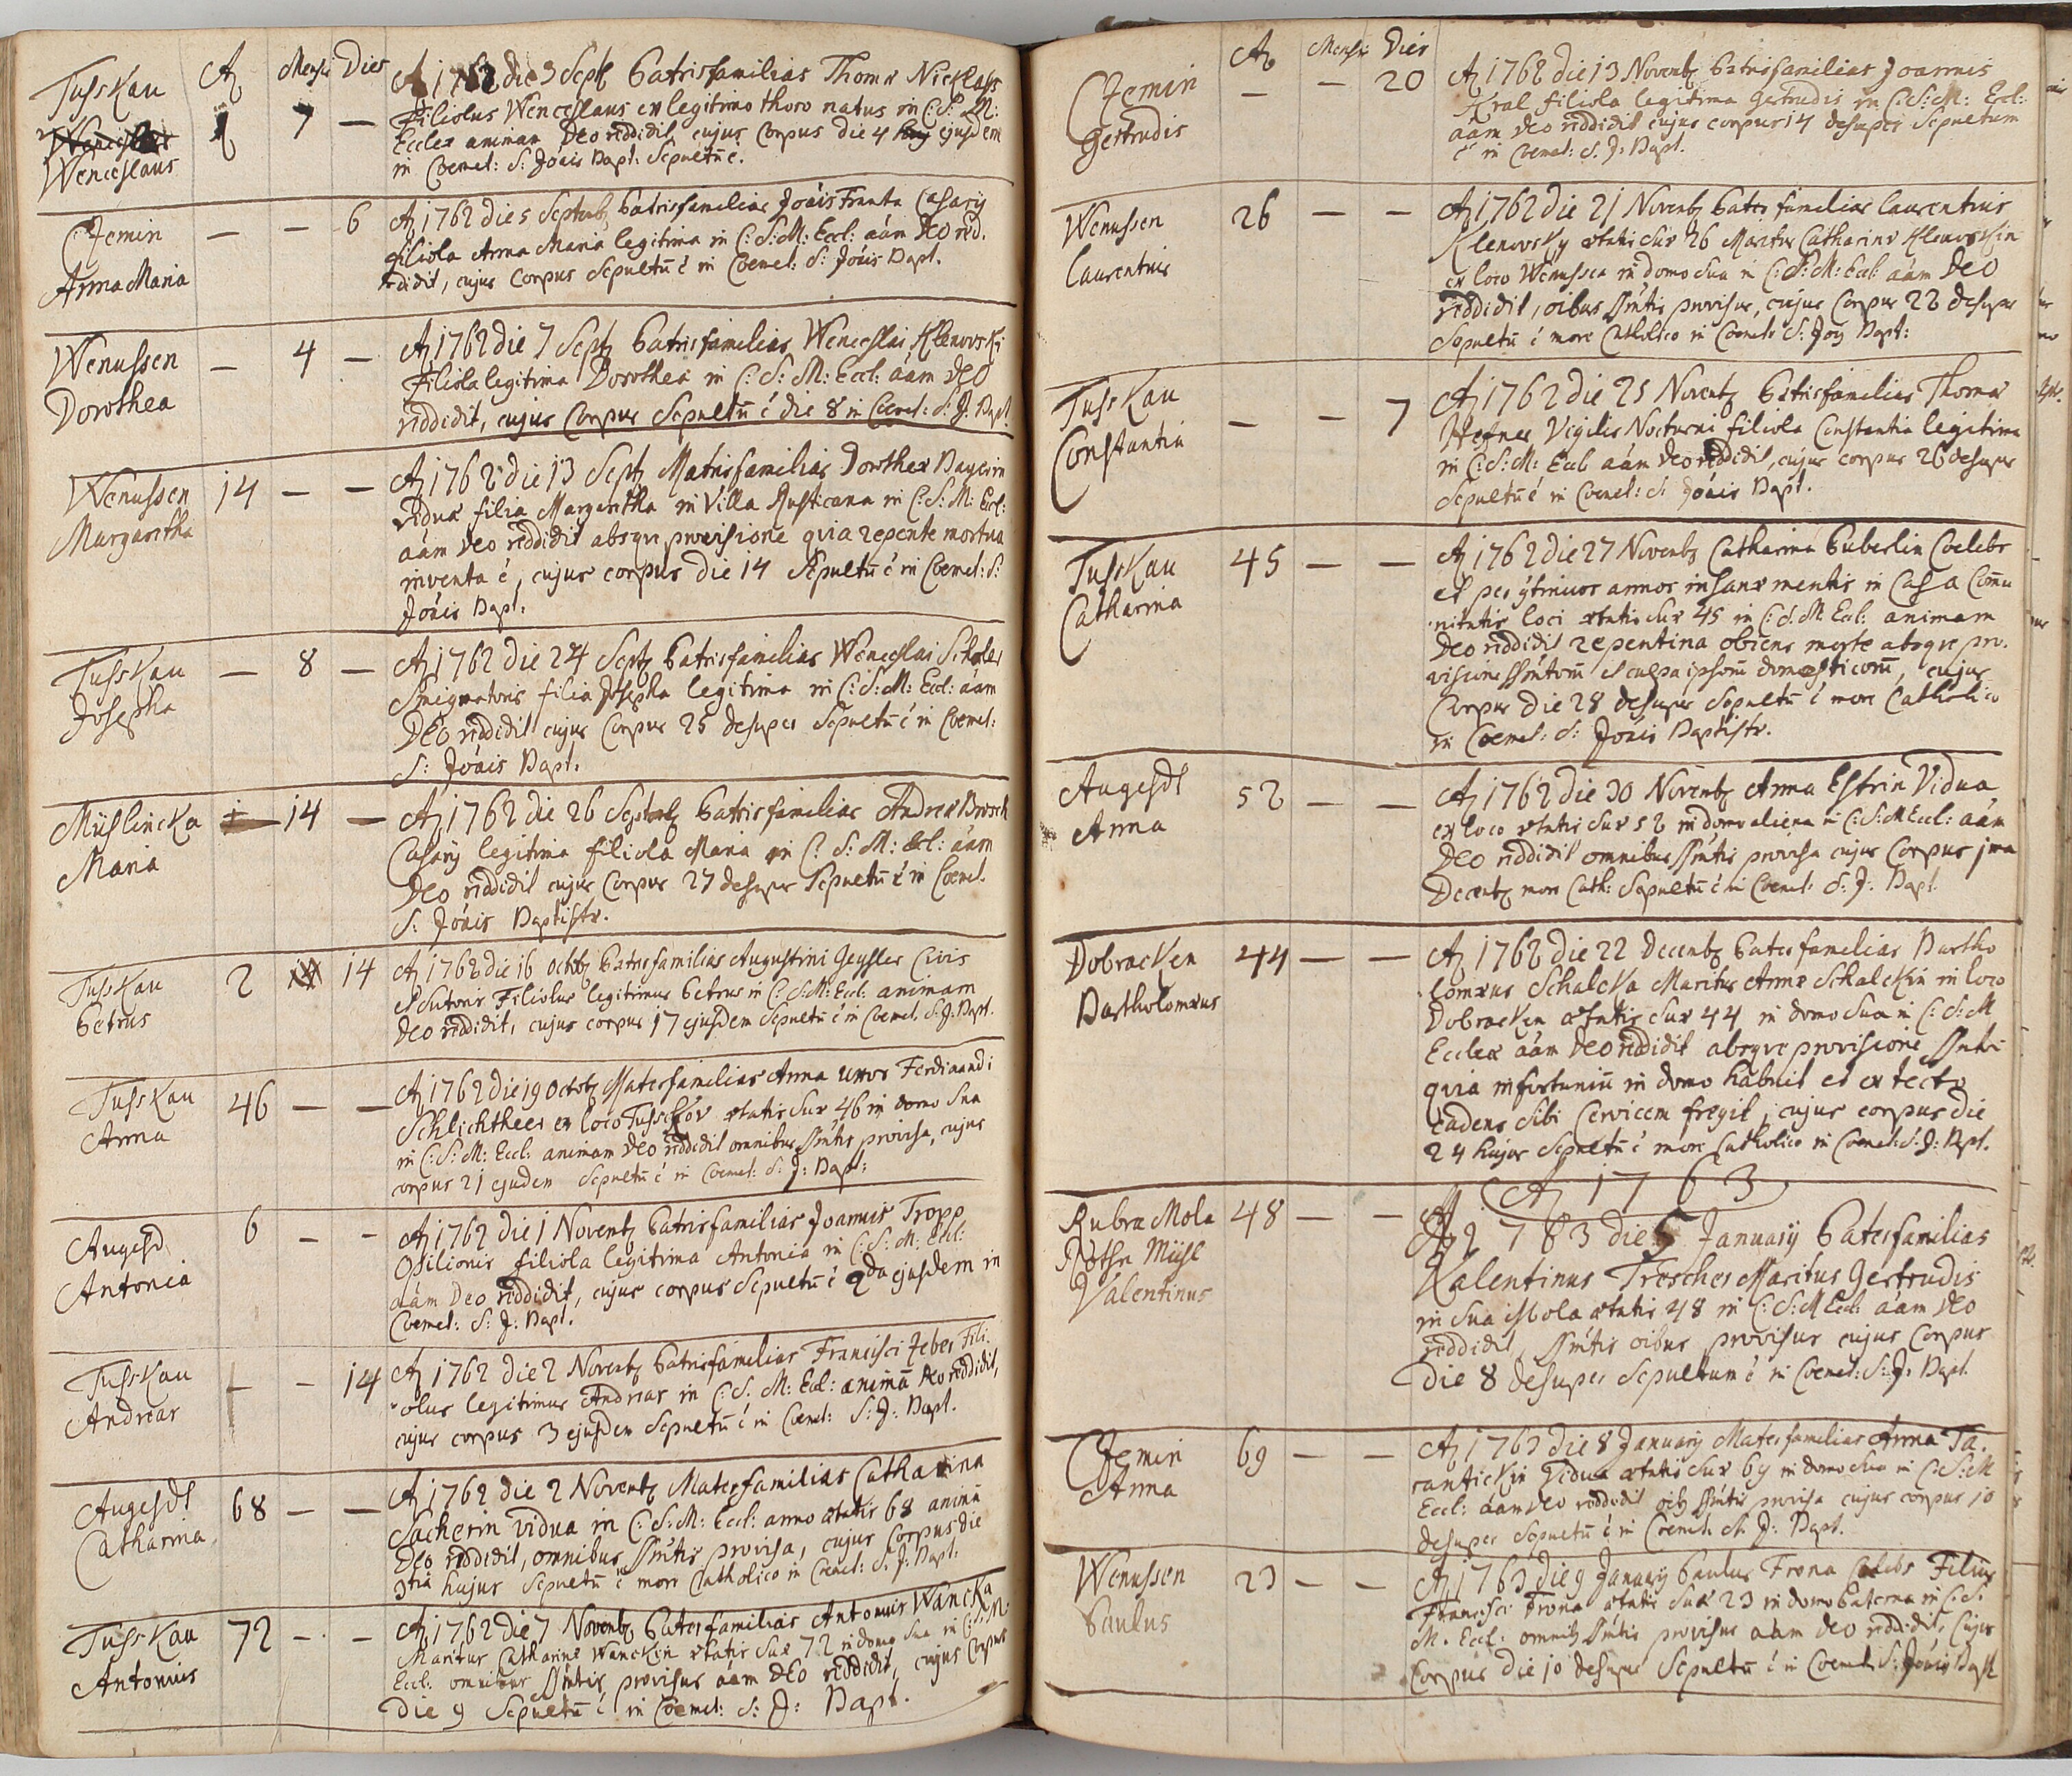 A Mensis Dies
Tusskau
Wenceslaus
Wenceslaus
7 —
A 1762 die 3 Sept Patrisfamilias Thomæ Nicklass
Filiolus Wenceslaus ex legitimo thoro natus in C: S: M:
Ecclæ animam Deo reddidit, cujus Corpus die 4 ejusdem
in Coemet: S: Jōais Bapt: Sepultū ē.
Czemin
Anna Maria
— — 6
A 1762 die 5 Septemb Patrisfamilias Jōais Franta Casarij
filiola Anna Maria legitima in C: S: M: Eccl: āam Deo red-
didit, cujus Corpus Sepultū ē in Coemet: S: Jōais Bapt.
Wenussen
Dorothea
— 4 —
A 1762 die 7 Sept Patrisfamilias Wenceslai Klenovski
Filiola legitima Dorothea in C: S: M: Eccl: āam Deo
reddidit, cujus Corpus Sepultū ē die 8 in Coemet: S: J: Bapt
Wenussen
Margaritha
14 — —
A 1762 die 13 Sept Matrisfamilias Dorotheæ Bayerin
viduæ filia Margaritha in Villa Rusticana in C: S: M: Eccl:
āam Deo reddidit absqve provisione qvia repente mortua
inventa ē, cujus corpus die 14 Sepultū ē in Coemet: S:
Jōais Bapt:
Tusskau
Josepha
— 8 —
A 1762 die 24 Sept Patrisfamilias Wenceslai Scholer
Smigmatoris filia Josepha legitima in C: S: M: Eccl: āam
Deo reddidit cujus Corpus 25 desuper Sepultū ē in Coemet:
S: Jōais Bapt:
Müslincka
Maria
14 —
A 1762 die 26 Septemb Patrisfamilias Andreæ Brosch
Casarij legitima filiola Maria in C: S: M: Eccl: āam
Deo reddidit cujus Corpus 27 desuper Sepultū ē in Coemet.
S: Jōais Baptistæ.
Tusskau
Petrus
2 14 14
A 1762 die 16 Octob Patrisfamilias Augustini Geysler Civis
et Sutoris Filiolus legitimus Petrus in C: S: M: Eccl: animam
Deo reddidit, cujus corpus 17 ejusdem Sepultū ē in Coemet. S: J: Bapt.
Tusskau
Anna
46 — —
A 1762 die 19 Octob Materfamilias Anna uxor Ferdinandi
Schlichtheer ex loco Tusskov ætatis suæ 46 in domo Sua
in C: S: M: Eccl: animam Deo reddidit omnibus Smtis provisa, cujus
corpus 21 ejusdem Sepultū ē in Coemet: S: J: Bapt:
Augesd
Antonia
6 — —
A 1762 die 1 Novemb Patrisfamilias Joannis Tropp
Opilionis filiola legitima Antonia in C: S: M: Eccl:
āam Deo reddidit, cujus corpus Sepultū ē 2da ejusdem in
Coemet: S: J: Bapt.
Tusskau
Andreas
— — 14
A 1762 die 2 Novemb Patrisfamilias Francisci Feber Fili-
olus legitimus Andreas in C: S. M: Eccl: animā Deo reddidit,
cujus corpus 3 ejusdem Sepultū ē in Coemet: S: J: Bapt.
Augesdt
Catharina
68 — —
A 1762 die 2 Novemb Materfamilias Catharina
Sacherin vidua in C: S: M: Eccl: anno ætatis 68 animā
Deo reddidit, omnibus Smtis provisa, cujus Corpus die
3tia hujus Sepultū ē more Catholico in Coemet: S: J: Bapt:
Tusskau
Antonius
72 — —
A 1762 die 7 Novemb Paterfamilias Antonius Wancka
Maritus Catharinæ Wanckin ætatis suæ 72 in domo Sua in C: S: M:
Eccl: omnibus Smtis provisus āam Deo reddidit, cujus Corpus
die 9 Sepultū ē in Coemet: S: J: Bapt.
A Mensis Dies
Czemin
Gertrudis
— — 20
A 1762 die 13 Novemb Patrisfamilias Joannis
Kral filiola legitima Gertrudis in C: S: M: Eccl:
āam Deo reddidit cujus corpus 14 desuper Sepultum
ē in Coemet: S. J: Bapt.
Wenussen
Laurentius
26 — —
A 1762 die 21 Novemb Paterfamilias Laurentius
Klenovsky ætatis suæ 26 Maritus Catharinæ Klenovskin
ex loco Wenussen in domo sua in C: S: M: Eccl: āam Deo
reddidit, oibus Smtis provisus, cujus Corpus 22 desuper
Sepultū ē more Catholico in Coemet: S: Jois Bapt:
Tusskau
Constantia
— — 7
A 1762 die 25 Novemb Patrisfamilias Thomæ
Hefner Vigilis Nocturni filiola Constantia legitima
in C: S: M: Eccl āam Deo reddidit, cujus corpus 26 desuper
Sepultū ē in Coemet: S: Jōais Bapt.
Tusskau
Catharina
45 — —
A 1762 die 27 Novemb Catharina Puberlin Coelebs
et per ptimuos annos insanæ mentis in Casa Comu-
nitatis loci ætatis suæ 45 in C: S: M Eccl: animam
Deo reddidit repentina obiens morte absqve pro-
visione Smtorū et culpa ipsorū domesticorū, cujus
Corpus die 28 desuper Sepultū ē more Catholico
in Coemet: S: Jōais Baptistæ.
Augesdt
Anna
52 — —
A 1762 die 30 Novemb Anna Estrin Vidua
ex loco ætatis suæ 52 in domo aliena in C: S: M Eccl: āam
Deo reddidit omnibus Smtis provisa cujus Corpus 1ma
Decemb more Cath: Sepultū ē in Coemet: S: J: Bapt
Dobracken
Bartholomæus
44 — —
A 1762 die 22 Decemb Paterfamilias Bartho
lomæus Schalcka Maritus Annæ Schalckin in loco
Dobracken ætatis suæ 44 in domo Sua in C: S: M
Ecclæ āam Deo reddidit absqve provisione Smtor
qvia infortuniū in domo habuit et ex tecto
cadens sibi Cervicem fregit, cujus corpus die
24 hujus Sepultū ē more Catholico in Coemet: S: J: Bapt.
A 1763
Rubra Mola
Rothe Mühl
Valentinus
48 — —
A 1763 die 5 January Paterfamilias
Valentinus Trescher Maritus Gertrudis
in sua Mola ætatis 48 in C: S: M Eccl: āam Deo
reddidit, Smtis oibus provisus cujus Corpus
die 8 desuper Sepultum ē in Coemet: S: J: Bapt.
Czemin
Anna
69 — —
A 1763 die 8 January Materfamilias Anna Ta-
rantickin Vidua ætatis suæ 69 in domo Sua in C: S: M
Eccl: āam Deo reddidit oib Smtis provisa cujus corpus 10
desuper Sepultū ē in Coemet. S: J: Bapt.
Wenussen
Paulus
23 — —
A 1763 die 9 January Paulus Frona Coelebs Filius
Francisci Frona ætatis suæ 23 in domo Paterna in C: S.
M. Eccl: omnib Smtis provisus āam Deo reddidit, Cujus
Corpus die 10 desuper Sepultū ē in Coemet S: Jōais Bapt